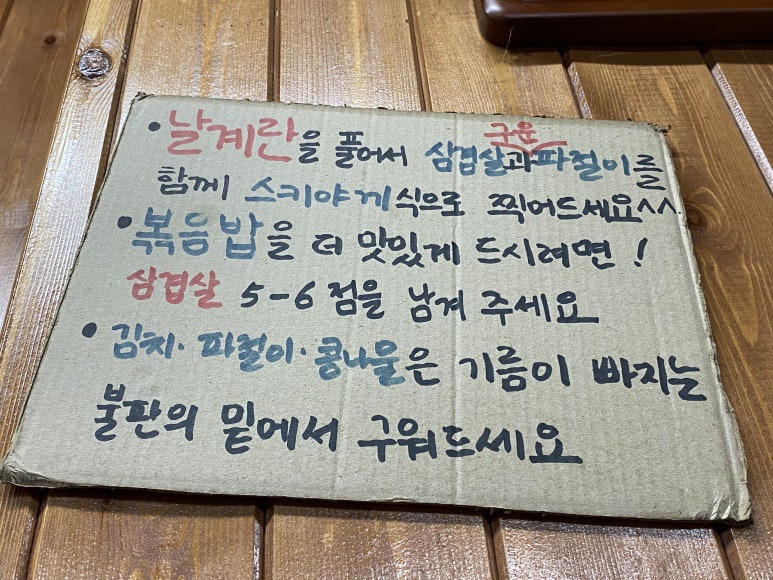 구운
• 날계란을 풀어서 삼겹살과파절이를
함께 스키야끼식으로 찍어드세요^^.
• 볶음밥을 더 맛있게 드시려면!
삼겹살 5-6점을 남겨 주세요
• 김치·파절이·콩나물은 기름이 빠지는
불판의 밑에서 구워드세요